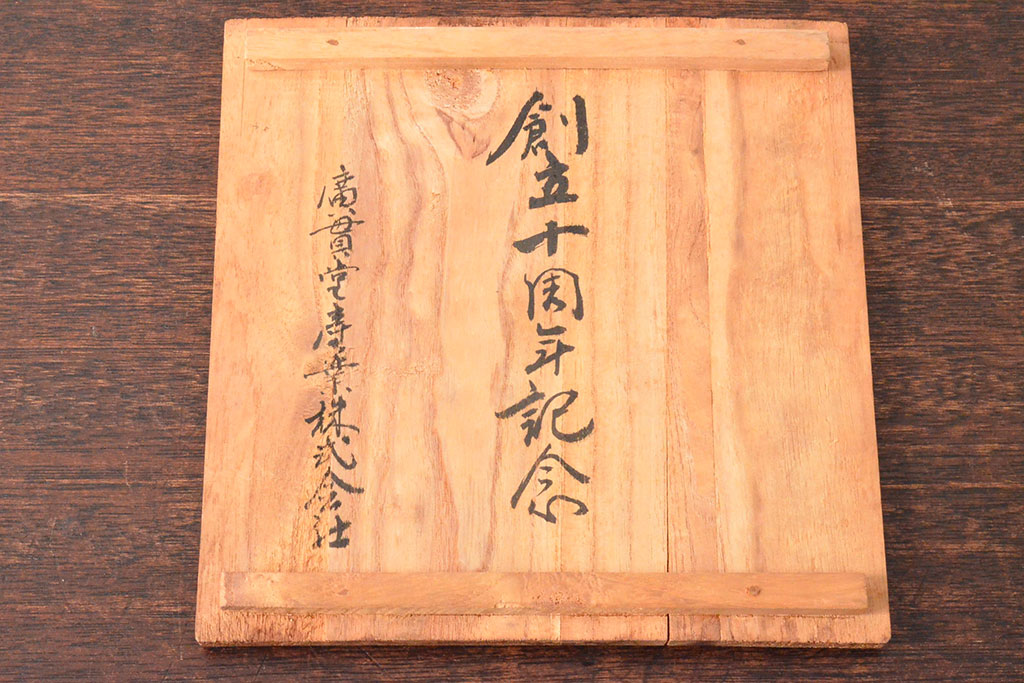 創立十周年記念
廣貫堂産業株式会社